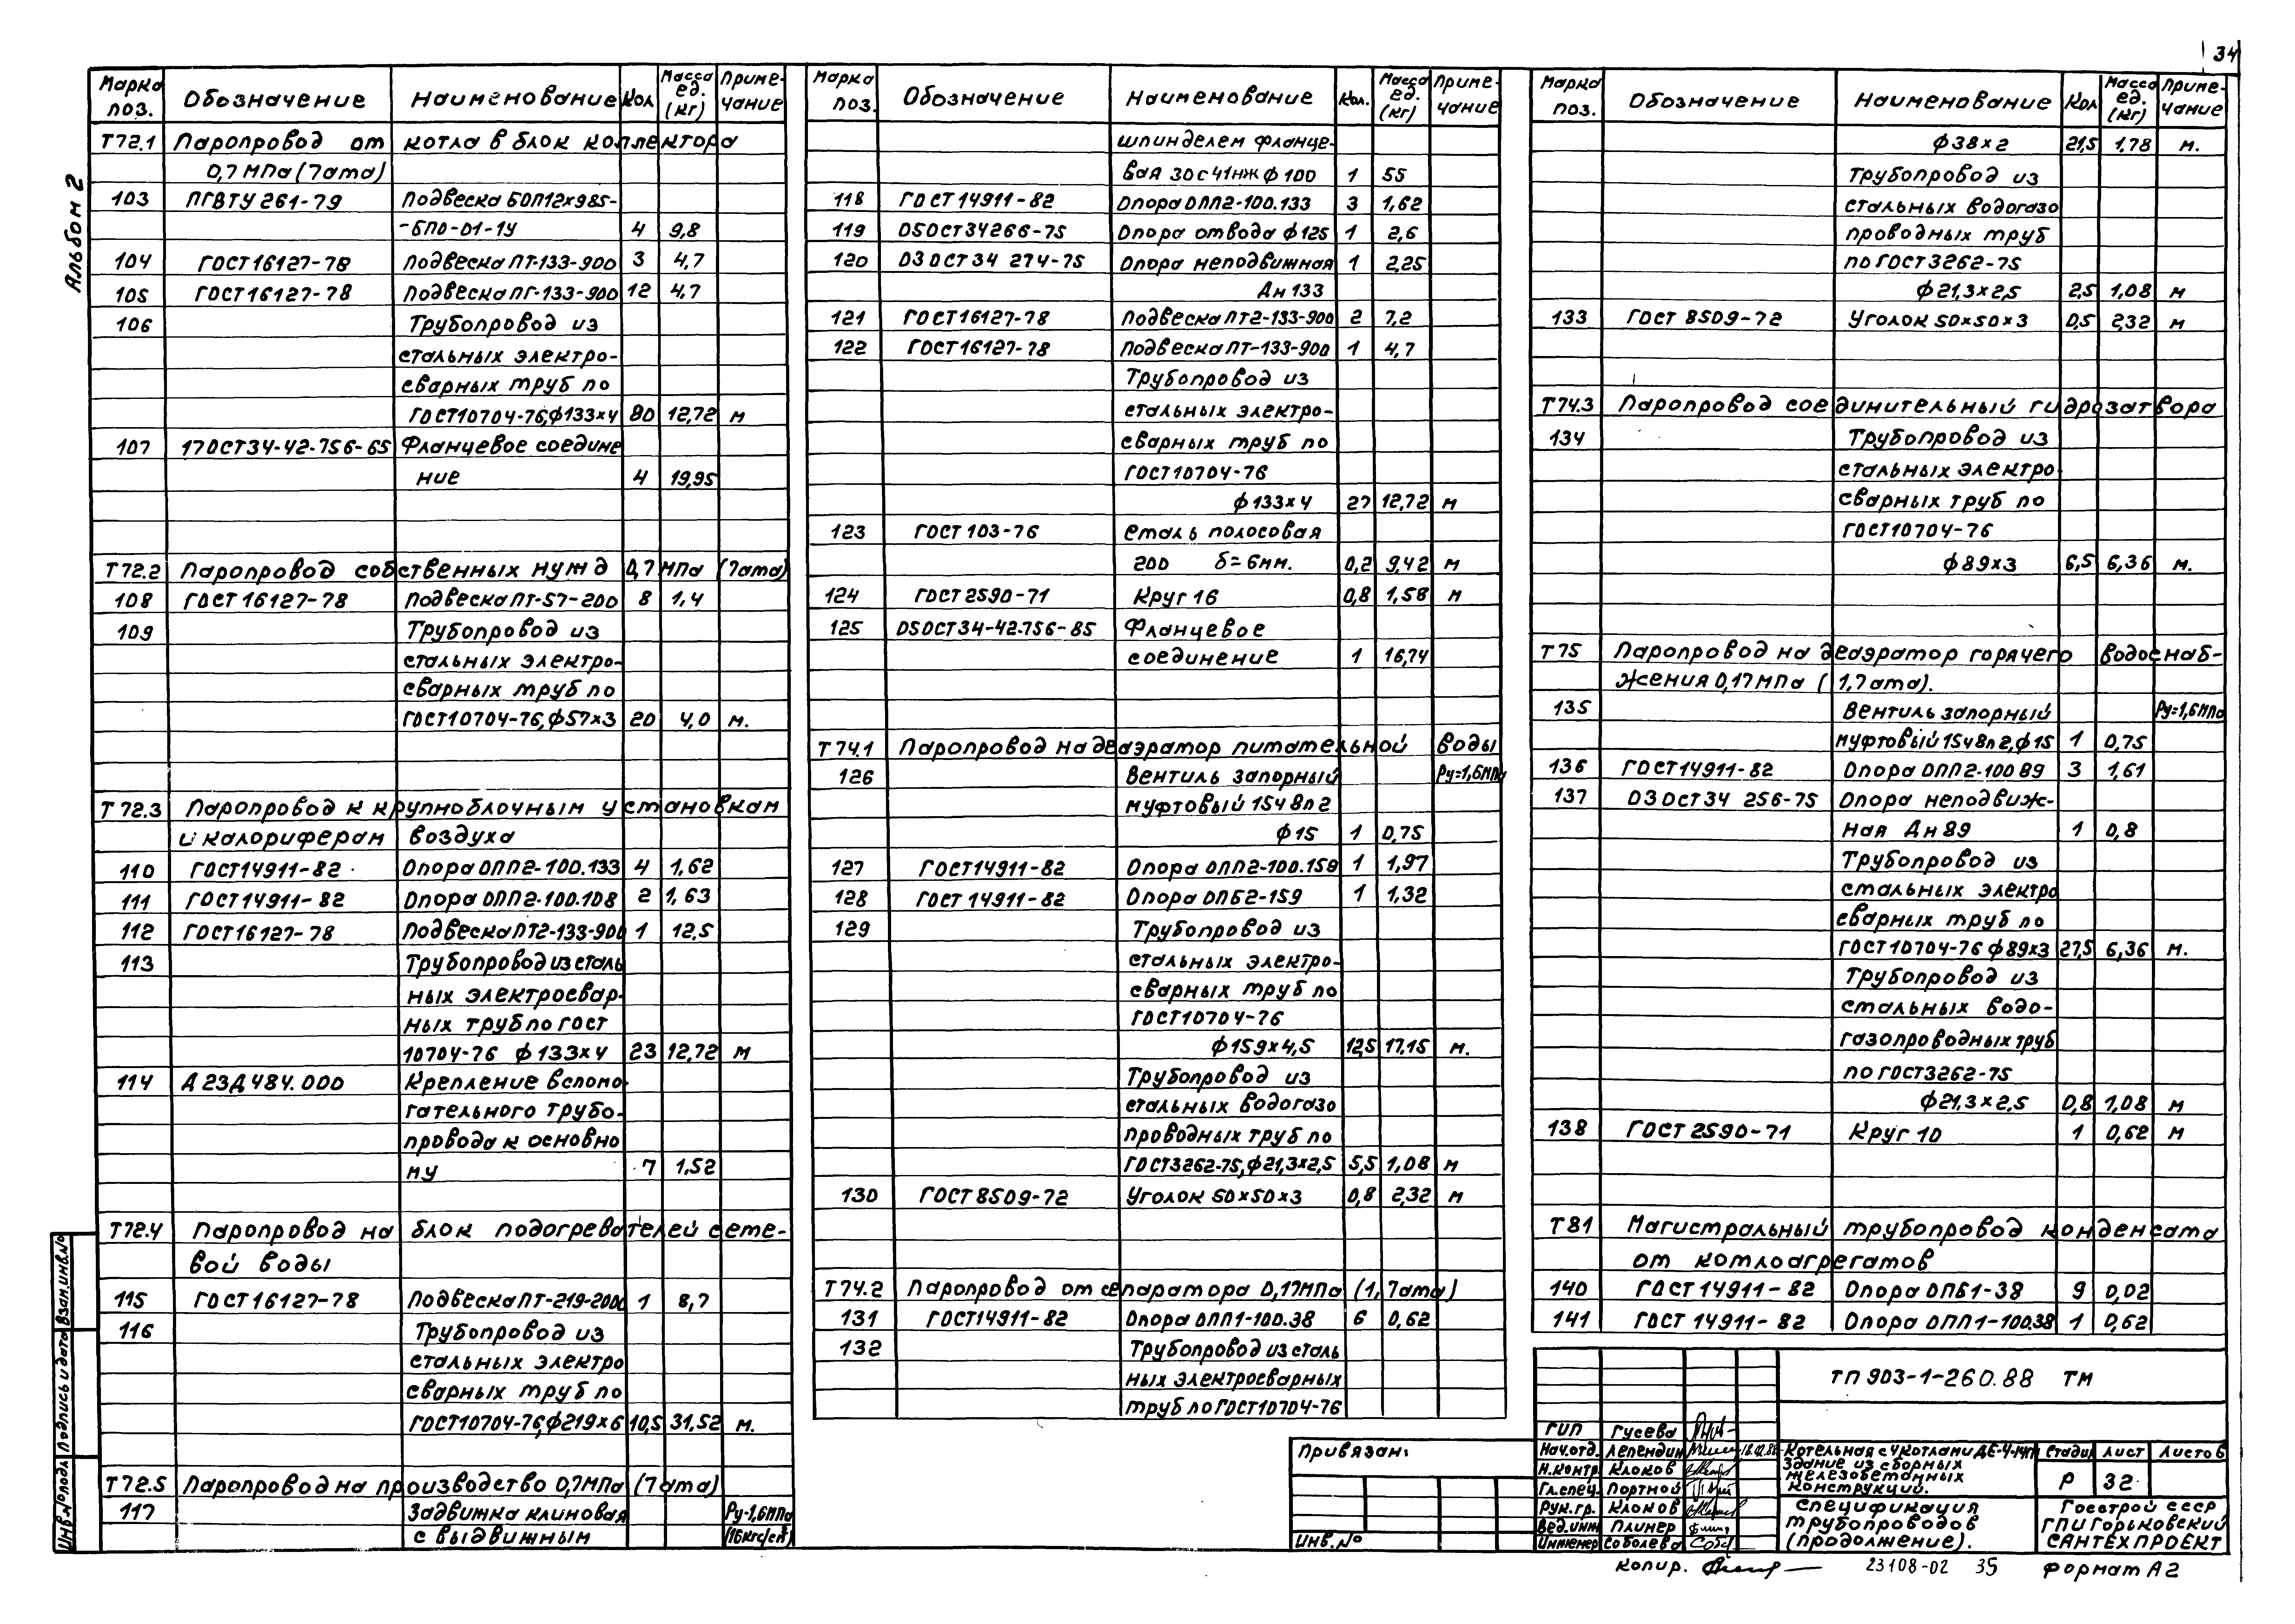 34
Альбом 2
Марка поз. Обозначение Наименование Кол Масса ед. (кг) Приме-чание
Т72.1 Паропровод от котла в блок коллектора
0,7 МПа (7ата)
103 ПГВТУ 261-79 Подвеска БОП12×985-
-БПО-01-1У 4 9,8
104 ГОСТ16127-78 Подвеска ПТ-133-900 3 4,7
105 ГОСТ16127-78 Подвеска ПГ-133-900 12 4,7
106 Трубопровод из
стальных электро-
сварных труб по
ГОСТ10704-76,ф133×4 80 12,72 м
107 17ОСТ34-42-756-65 Фланцевое соедине
ние 4 19,95
Т72.2 Паропровод собственных нужд 0,7 МПа (7ата)
108 ГОСТ 16127-78 Подвеска ПТ-57-200 8 1,4
109 Трубопровод из
стальных электро-
сварных труб по
ГОСТ10704-76,ф57×3 20 4,0 м.
Т72.3 Паропровод к крупноблочным установкам
и калориферам воздуха
110 ГОСТ14911-82 Опора ОПП2-100.133 4 1,62
111 ГОСТ14911-82 Опора ОПП2-100.108 2 1,63
112 ГОСТ16127-78 Подвеска ПТ2-133-900 1 12,5
113 Трубопровод из сталь
ных электросвар-
ных труб по ГОСТ
10704-76 ф133×4 23 12,72 м
114 А23Д484.000 Крепление вспомо-
гательного трубо-
провода к основно
му 7 1,52
Т72.4 Паропровод на блок подогревателей сете-
вой воды
115 ГОСТ16127-78 Подвеска ПТ-219-2000 1 8,7
116 Трубопровод из
стальных электро
сварных труб по
ГОСТ10704-76,ф219×6 10,5 31,52 м.
Т72.5 Паропровод на производство 0,7МПа (7ата)
117 Задвижка клиновая Ру=1,6МПа
с выдвижным (16кгс/см²)
Марка поз. Обозначение Наименование Кол. Масса ед. (кг) Приме-чание
шпинделем фланце-
вая 30с41нж ф100 1 55
118 ГОСТ14911-82 Опора ОПП2-100.133 3 1,62
119 05ОСТ34266-75 Опора отвода ф125 1 2,6
120 03ОСТ34 274-75 Опора неподвижная 1 2,25
Дн 133
121 ГОСТ16127-78 Подвеска ПТ2-133-900 2 7,2
122 ГОСТ16127-78 Подвеска ПТ-133-900 1 4,7
Трубопровод из
стальных электро-
сварных труб по
ГОСТ10704-76
ф133×4 27 12,72 м
123 ГОСТ 103-76 Сталь полосовая
200 δ=6мм. 0,2 9,42 м
124 ГОСТ2590-71 Круг 16 0,8 1,58 м
125 05ОСТ34-42.756-85 Фланцевое
соединение 1 16,74
Т74.1 Паропровод на деаэратор питательной воды
126 Вентиль запорный Ру=1,6МПа
муфтовый 15ч8п2
ф15 1 0,75
127 ГОСТ14911-82 Опора ОПП2-100.159 1 1,97
128 ГОСТ14911-82 Опора ОПБ2-159 1 1,32
129 Трубопровод из
стальных электро-
сварных труб по
ГОСТ10704-76
ф159×4,5 12,5 17,15 м.
Трубопровод из
стальных водогазо
проводных труб по
ГОСТ3262-75,ф21,3×2,5 5,5 1,08 м
130 ГОСТ8509-72 Уголок 50×50×3 0,8 2,32 м
Т74.2 Паропровод от сепаратора 0,17МПа (1,7ата)
131 ГОСТ14911-82 Опора ОПП1-100.38 6 0,62
132 Трубопровод из сталь
ных электросварных
труб по ГОСТ10704-76
Марка поз. Обозначение Наименование Кол Масса ед. (кг) Приме-чание
ф38×2 21,5 1,78 м.
Трубопровод из
стальных водогазо
проводных труб
по ГОСТ3262-75
ф21,3×2,5 2,5 1,08 м
133 ГОСТ 8509-72 Уголок 50×50×3 0,5 2,32 м
Т74.3 Паропровод соединительный гидрозатвора
134 Трубопровод из
стальных электро-
сварных труб по
ГОСТ10704-76
ф89×3 6,5 6,36 м.
Т75 Паропровод на деаэратор горячего водоснаб-
жения 0,17МПа (1,7ата).
135 Вентиль запорный Ру=1,6МПа
муфтовый 15ч8п2,ф15 1 0,75
136 ГОСТ14911-82 Опора ОПП2-100 89 3 1,61
137 03ОСТ34 256-75 Опора неподвиж-
ная Дн 89 1 0,8
Трубопровод из
стальных электро
сварных труб по
ГОСТ10704-76 ф89×3 27,5 6,36 м.
Трубопровод из
стальных водо-
газопроводных труб
по ГОСТ3262-75
ф21,3×2,5 0,8 1,08 м
138 ГОСТ 2590-71 Круг 10 1 0,62 м
Т81 Магистральный трубопровод конденсата
от котлоагрегатов
140 ГОСТ 14911-82 Опора ОПБ1-38 9 0,02
141 ГОСТ 14911-82 Опора ОПП1-100.38 1 0,62
ТП 903-1-260.88 ТМ
ГИП Гусева
Нач.отд. Лепендин
Н.контр. Клоков
Гл.спец. Портной
Рук.гр. Клоков
Вед.инж Плинер
Инженер Соболева
Котельная с 4 котлами ДЕ-4-14ГМ
Здание из сборных
железобетонных
конструкций.
Стадия Лист Листов
Р 32
Спецификация
трубопроводов
(продолжение).
Госстрой СССР
ГПИ Горьковский
САНТЕХПРОЕКТ
Привязан:
Инв.№
Инв.№подл Подпись и дата Взам.инв.№
Копир.
23108-02 35
Формат А2